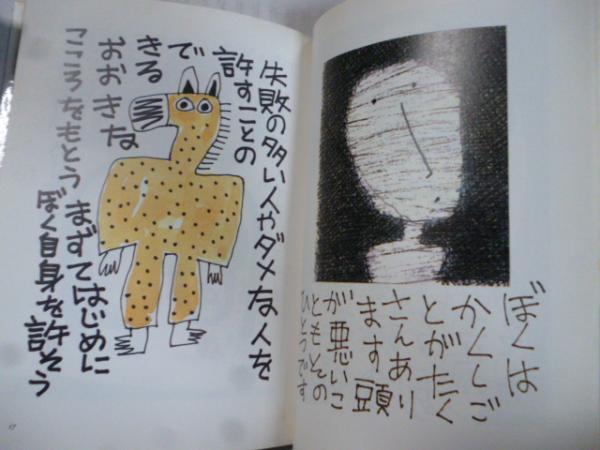 ぼくは
かくしご
とがたく
さんあり
ます頭
が悪いこ
ともその
ひとつです
失敗の多い人やダメな人を
許すことの
で
きる
おおきな
こころをもとう
まずてはじめに
ぼく自身を許そう
17